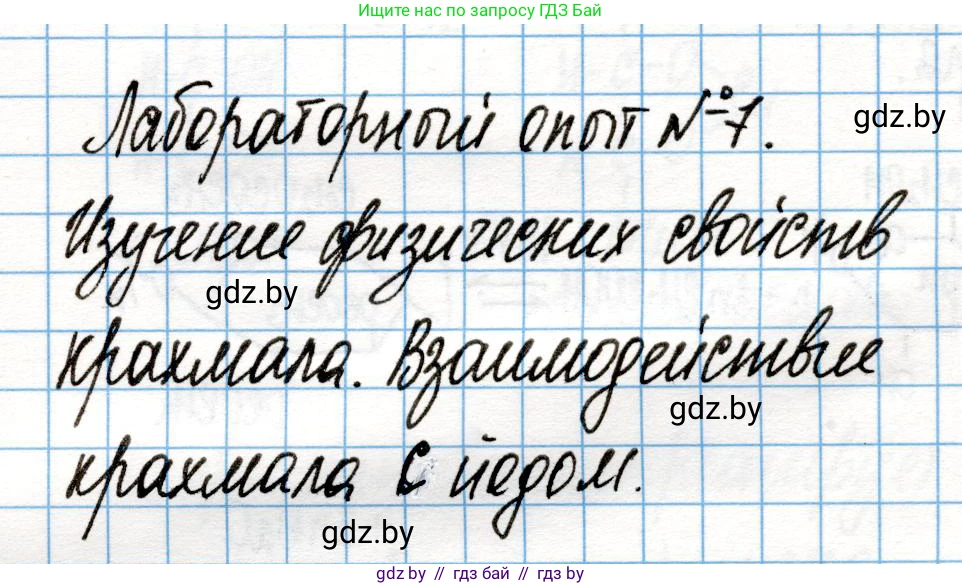 Ищите нас по запросу ГДЗ Бай
Лабораторный опыт №7.
gdz.by
Изучение физических свойств
gdz.by
крахмала. Взаимодействие
gdz.by
крахмала с йодом.
gdz.by
gdz.by // гдз бай // гдз by